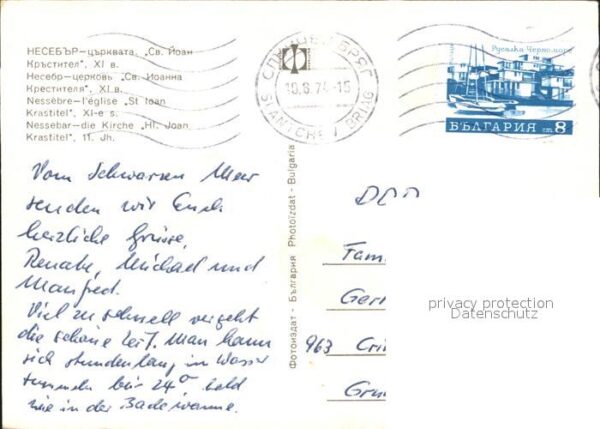 НЕСЕБЪР—църквата „Св. Йоан
Кръстител", XI в.
Несебр—церковь „Св. Иоанна
Крестителя", XI в.
Nessèbre—l'église „St Ioan
Krastitel", XI-e s.
Nessebar—die Kirche „Hl. Joan
Krastitel", 11. Jh.
Vom Schwarzen Meer
senden wir Euch
herzliche Grüsse,
Renate, Michael und
Manfred.
Viel zu schnell vergeht
die schöne Zeit. Man kann
sich stundenlang im Wasser
tummeln bei 24°
wie in der Badewanne.
Фотоиздат - България Photoizdat - Bulgaria
СЛЪНЧЕВ БРЯГ
10.6.74-15
SLANTCHEV BRIAG
Русалка Черно море
БЪЛГАРИЯ ст. 8
DDR
Fam
Ger
963 Cri
Gru
privacy protection
Datenschutz